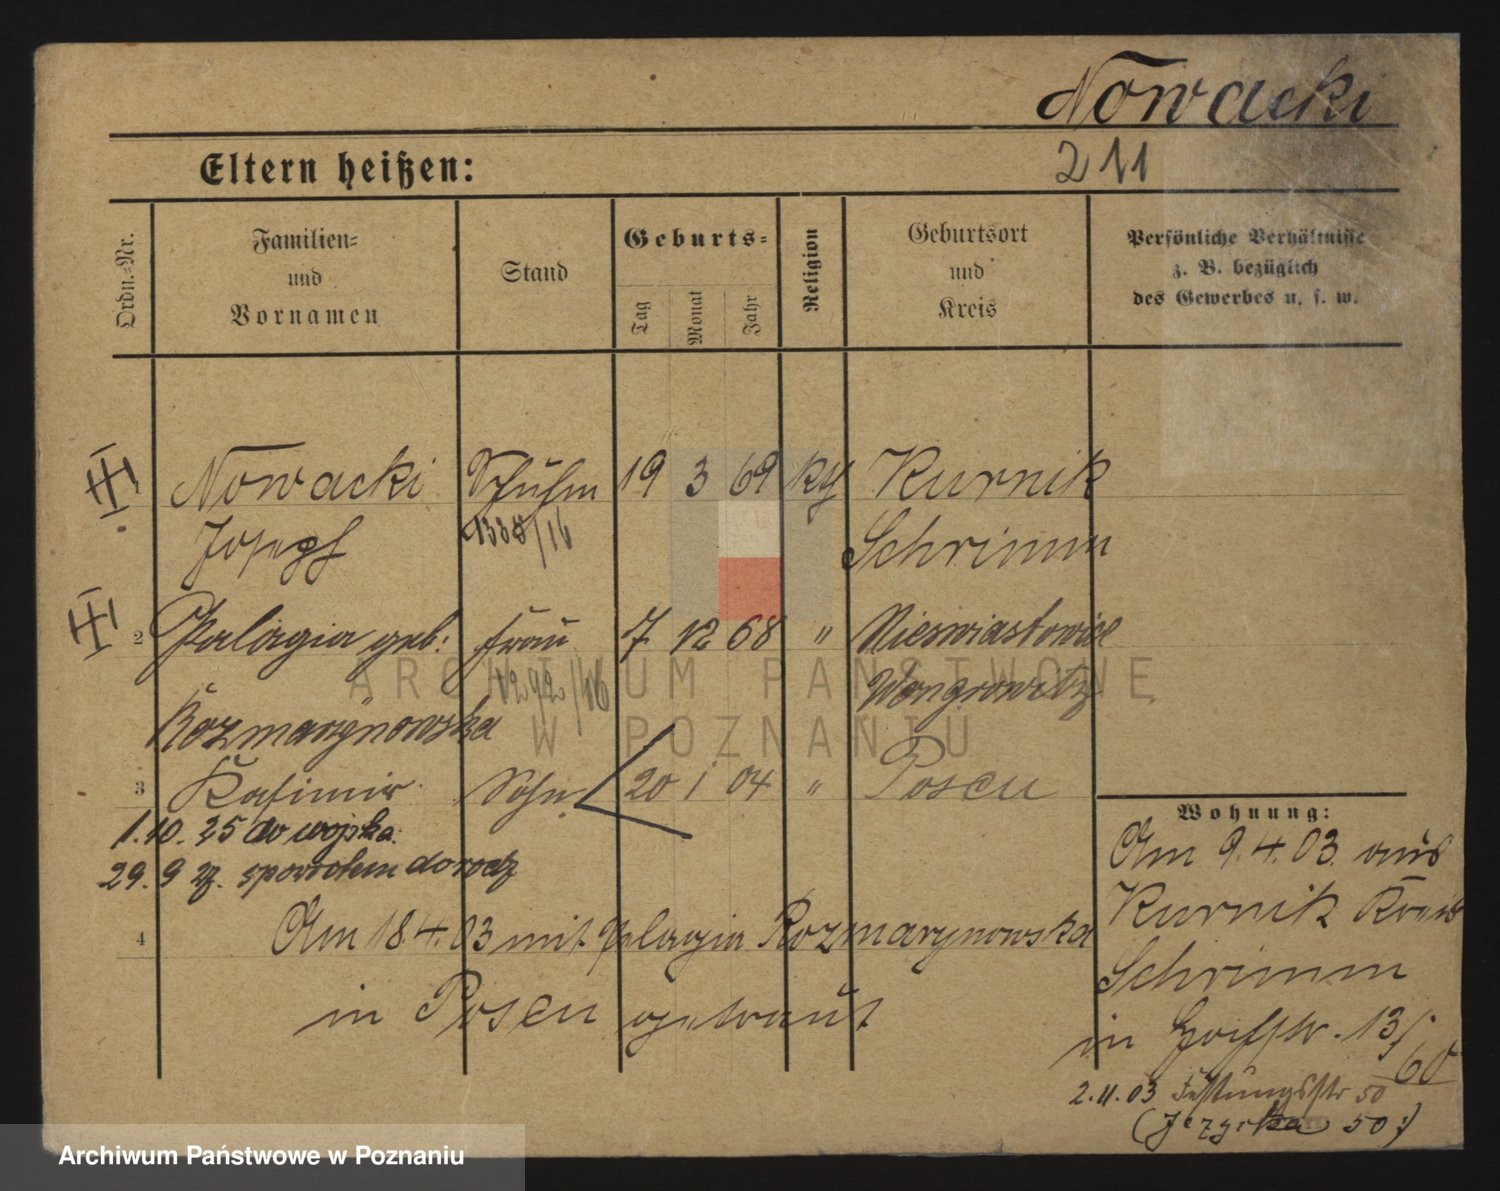 Nowacki
Eltern heißen:
211
Ordn.=Nr.
Familien=
und
Vornamen
Stand
Geburts=
Tag
Monat
Jahr
Religion
Geburtsort
und
Kreis
Persönliche Verhältnisse
z. B. bezüglich
des Gewerbes u. s. w.
Nowacki Schuhm 19 3 69 kth Kurnik
Joseph 1338/16 Schrimm
2 Pelagia geb: Frau 7 12 68 " Nieswiastowice
1292/16 Wongrowitz
Rozmarynowska
3 Kasimir Sohn 20 1 04 " Posen
1.10.25 do wojska.
29.9 spowrotem do rodz
4 Am 18 4. 03 mit Pelagia Rozmarynowska
in Posen getraut
Wohnung:
Am 9.4.03. aus
Kurnik Kreis
Schrimm
in 13/60
2.11.03 Festungsstr 50
(Jezycka 50:)
ARCHIWUM PAŃSTWOWE
W POZNANIU
Archiwum Państwowe w Poznaniu